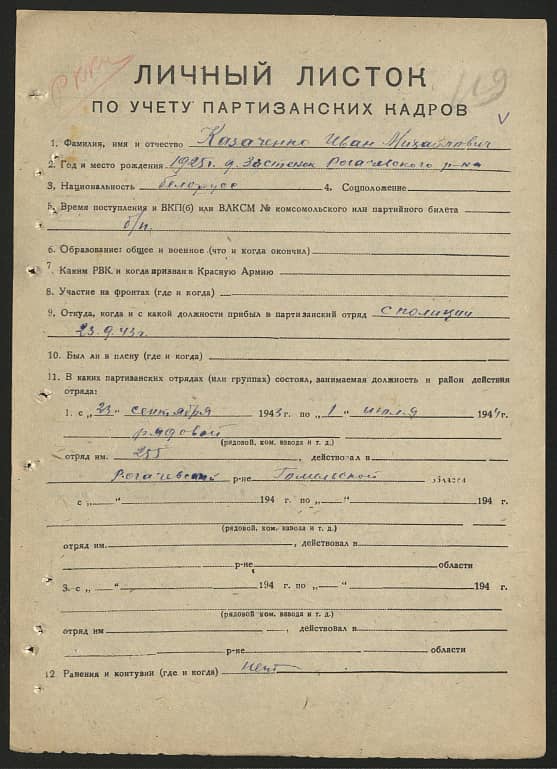 РККА
119
ЛИЧНЫЙ ЛИСТОК
ПО УЧЕТУ ПАРТИЗАНСКИХ КАДРОВ
1. Фамилия, имя и отчество Казаченко Иван Михайлович
2. Год и место рождения 1925г. д. Застенок Рогачевского р-на
3. Национальность белорусс 4. Соцположение
5. Время поступления в ВКП(б) или ВЛКСМ № комсомольского или партийного билета
б/п.
6. Образование: общее и военное (что и когда окончил)
7. Каким РВК и когда призван в Красную Армию
8. Участие на фронтах (где и когда)
9. Откуда, когда и с какой должности прибыл в партизанский отряд с полиции
23.9.43г.
10. Был ли в плену (где и когда)
11. В каких партизанских отрядах (или группах) состоял, занимаемая должность и район действия
отряда:
1. с „23“ сентября 1943 г. по „1“ июля 1944 г.
рядовой
(рядовой, ком. взвода и т. д.)
отряд им. 255 , действовал в
Рогачевский р-не Гомельской области
с „ “ 194 г. по „ “ 194 г.
(рядовой, ком. взвода и т. д.)
отряд им. , действовал в
р-не области
3. с „ “ 194 г. по „ “ 194 г.
(рядовой ком. взвода и т. д.)
отряд им , действовал в
р-не области
12. Ранения и контузии (где и когда) нет